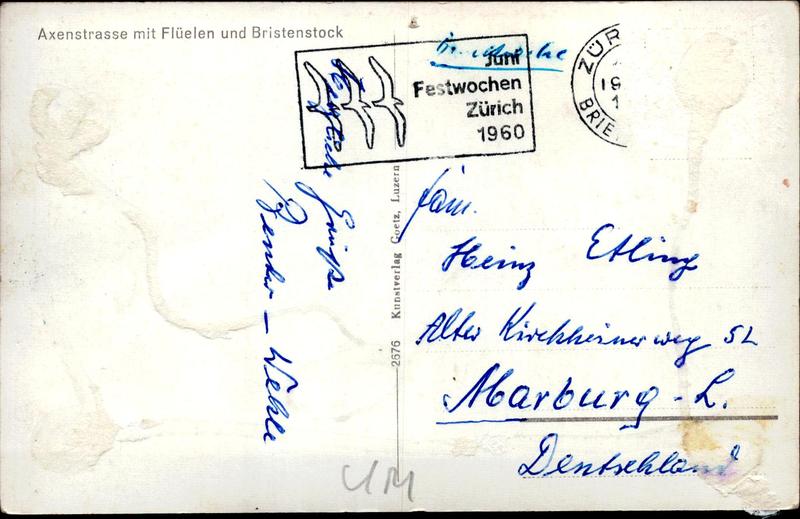 Axenstrasse mit Flüelen und Bristenstock
Drucksache
Juni
Festwochen
Zürich
1960
ZÜR
19
1
BRIE
Herzliche
Grüße
Benter-Wehle
2676 Kunstverlag Goetz, Luzern
Fam.
Heinz Etling
Alter Kirchhainerweg 52
Marburg-L.
Deutschland